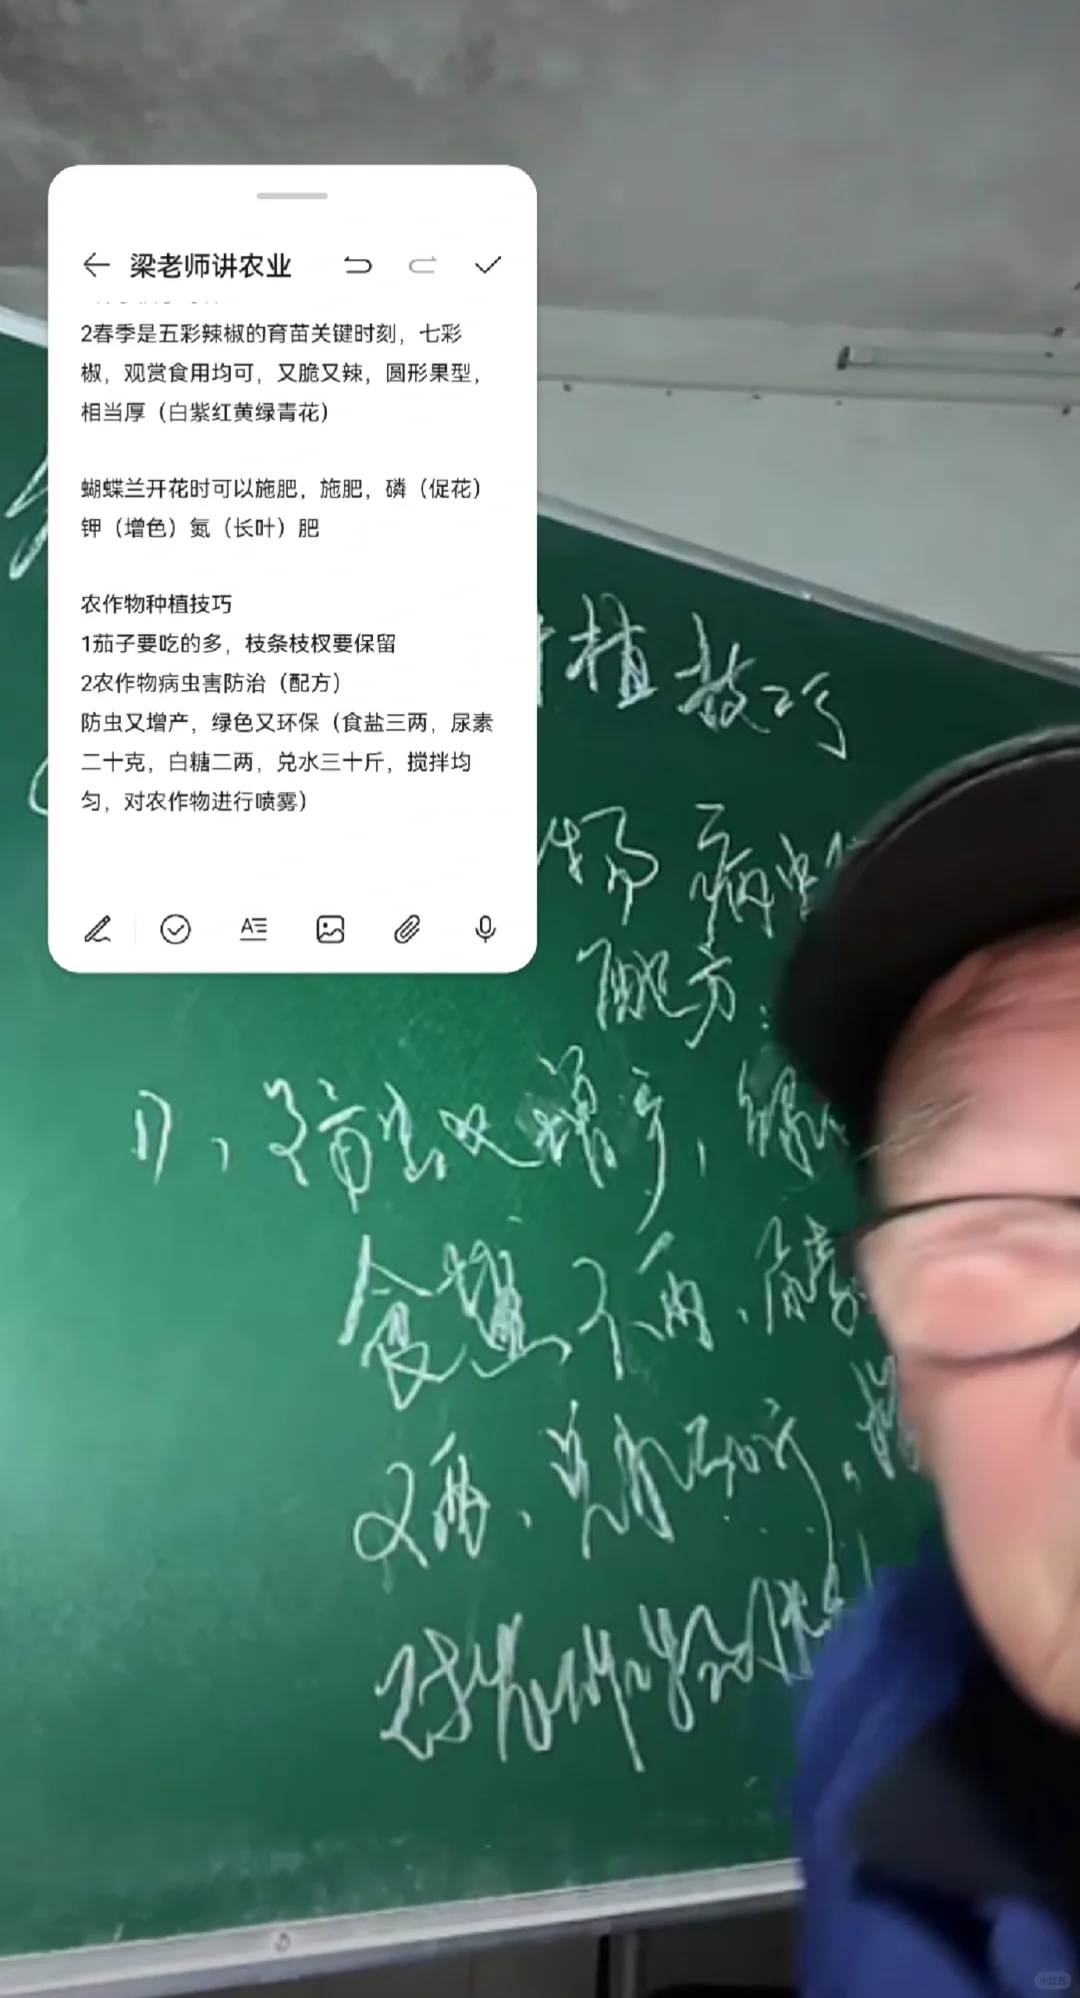 梁老师讲农业
2春季是五彩辣椒的育苗关键时刻，七彩
椒，观赏食用均可，又脆又辣，圆形果型，
相当厚（白紫红黄绿青花）
蝴蝶兰开花时可以施肥，施肥，磷（促花）
钾（增色）氮（长叶）肥
农作物种植技巧
1茄子要吃的多，枝条枝杈要保留
2农作物病虫害防治（配方）
防虫又增产，绿色又环保（食盐三两，尿素
二十克，白糖二两，兑水三十斤，搅拌均
匀，对农作物进行喷雾）
植技巧
物病虫
配方：
1），防虫又增产，绿
食盐三两、尿素
对农作物
小红书